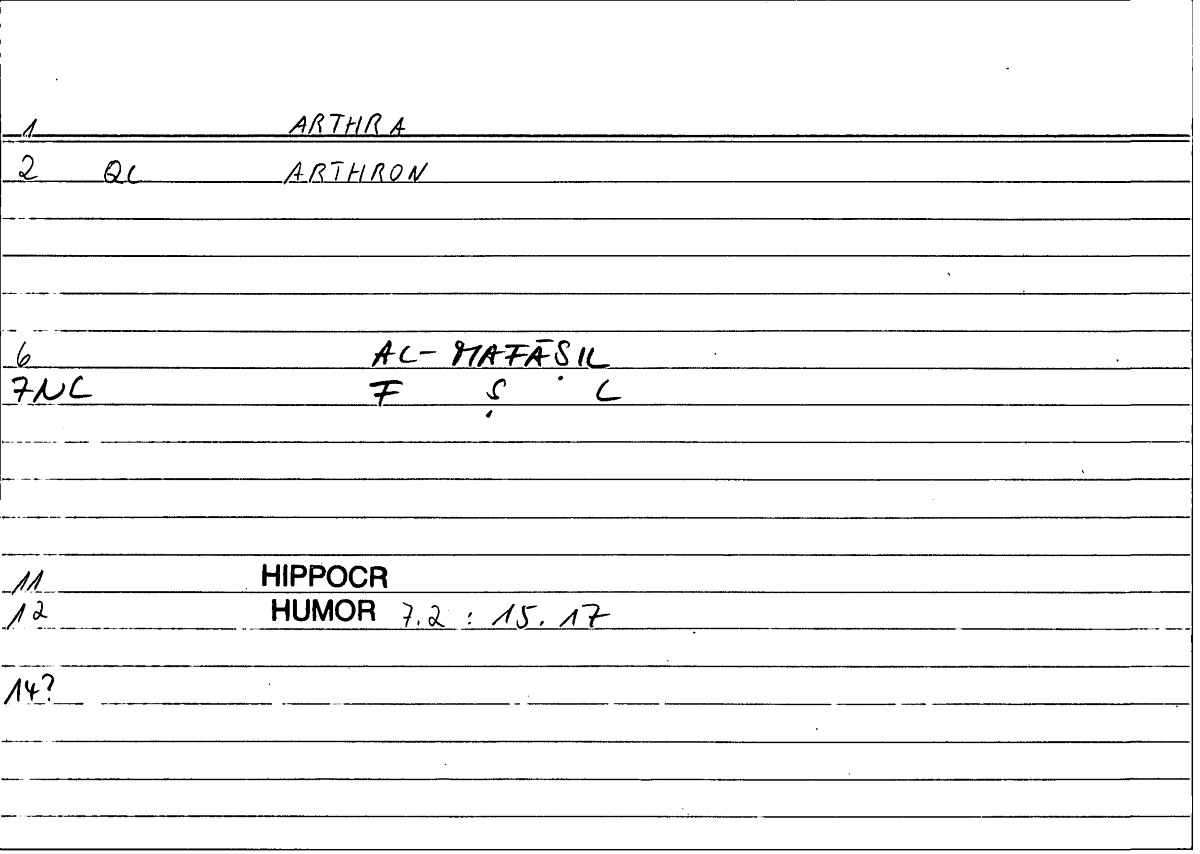 1 ARTHRA
2 QL ARTHRON
6 AL-MAFĀṢIL
7NL F Ṣ L
11 HIPPOCR
12 HUMOR 7.2 : 15.17
14?